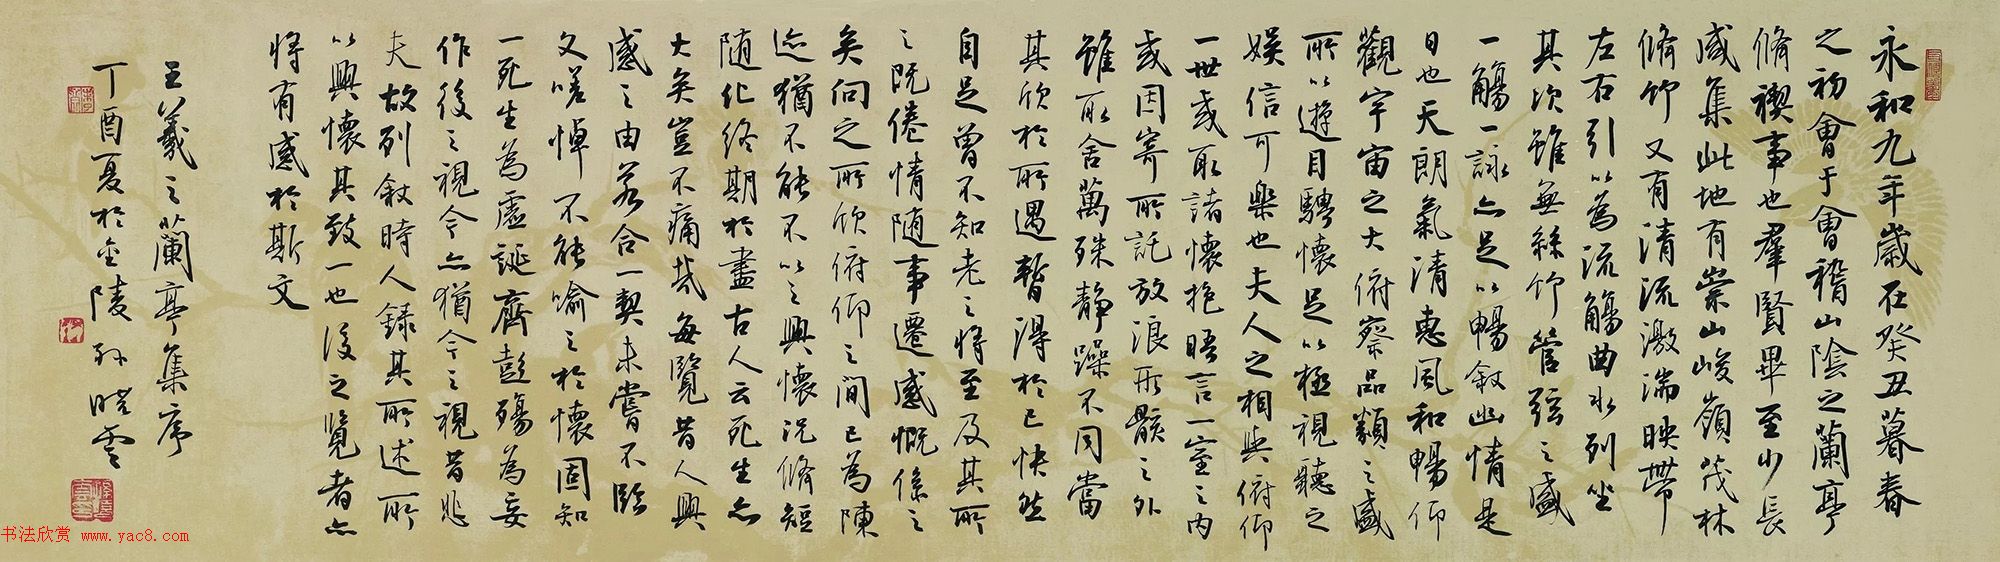 永和九年歲在癸丑暮春
之初會于會稽山陰之蘭亭
脩禊事也羣賢畢至少長
咸集此地有崇山峻嶺茂林
脩竹又有清流激湍映帶
左右引以為流觴曲水列坐
其次雖無絲竹管弦之盛
一觴一詠亦足以暢敘幽情是
日也天朗氣清惠風和暢仰
觀宇宙之大俯察品類之盛
所以遊目騁懷足以極視聽之
娛信可樂也夫人之相與俯仰
一世或取諸懷抱晤言一室之內
或因寄所託放浪形骸之外
雖取舍萬殊靜躁不同當
其欣於所遇暫得於己快然
自足曾不知老之將至及其所
之既倦情隨事遷感慨係之
矣向之所欣俯仰之間已為陳
迹猶不能不以之興懷況脩短
隨化終期於盡古人云死生亦
大矣豈不痛哉每覽昔人興
感之由若合一契未嘗不臨
文嗟悼不能喻之於懷固知
一死生為虛誕齊彭殤為妄
作後之視今亦猶今之視昔悲
夫故列敘時人錄其所述所
以興懷其致一也後之覽者亦
將有感於斯文
王羲之蘭亭集序
丁酉夏於金陵孫曉雲
书法欣赏 www.yac8.com